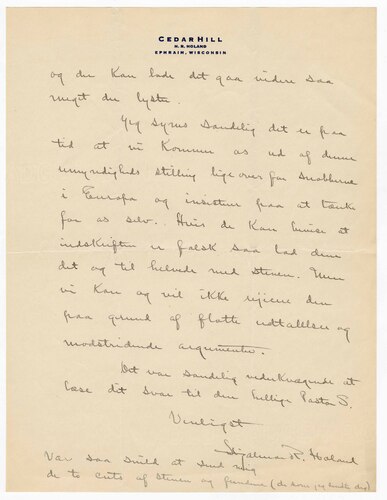 CEDAR HILL
H. R. HOLAND
EPHRAIM, WISCONSIN
og du kan lade det gaa videre saa
meget du lyster.
Jeg synes sandelig det er paa
tid at vi kommer os ud af denne
umyndigheds stilling lige over for snobberne
i Europa og insisterer paa at tænke
for os selv. Hvis de kan bevise at
indskriften er falsk saa lad dem
det og til helvede med stenen. Men
vi kan og vil ikke rejicere den
paa grund af flotte udtalelser og
modstridende argumenter.
Det var sandelig vederkvægende at
læse dit svar til den hellige Pastor S.
Venligst
Hjalmar R. Holand
Vær saa snild at send mig
de to cuts af stenen og (de som jeg sendte dig)